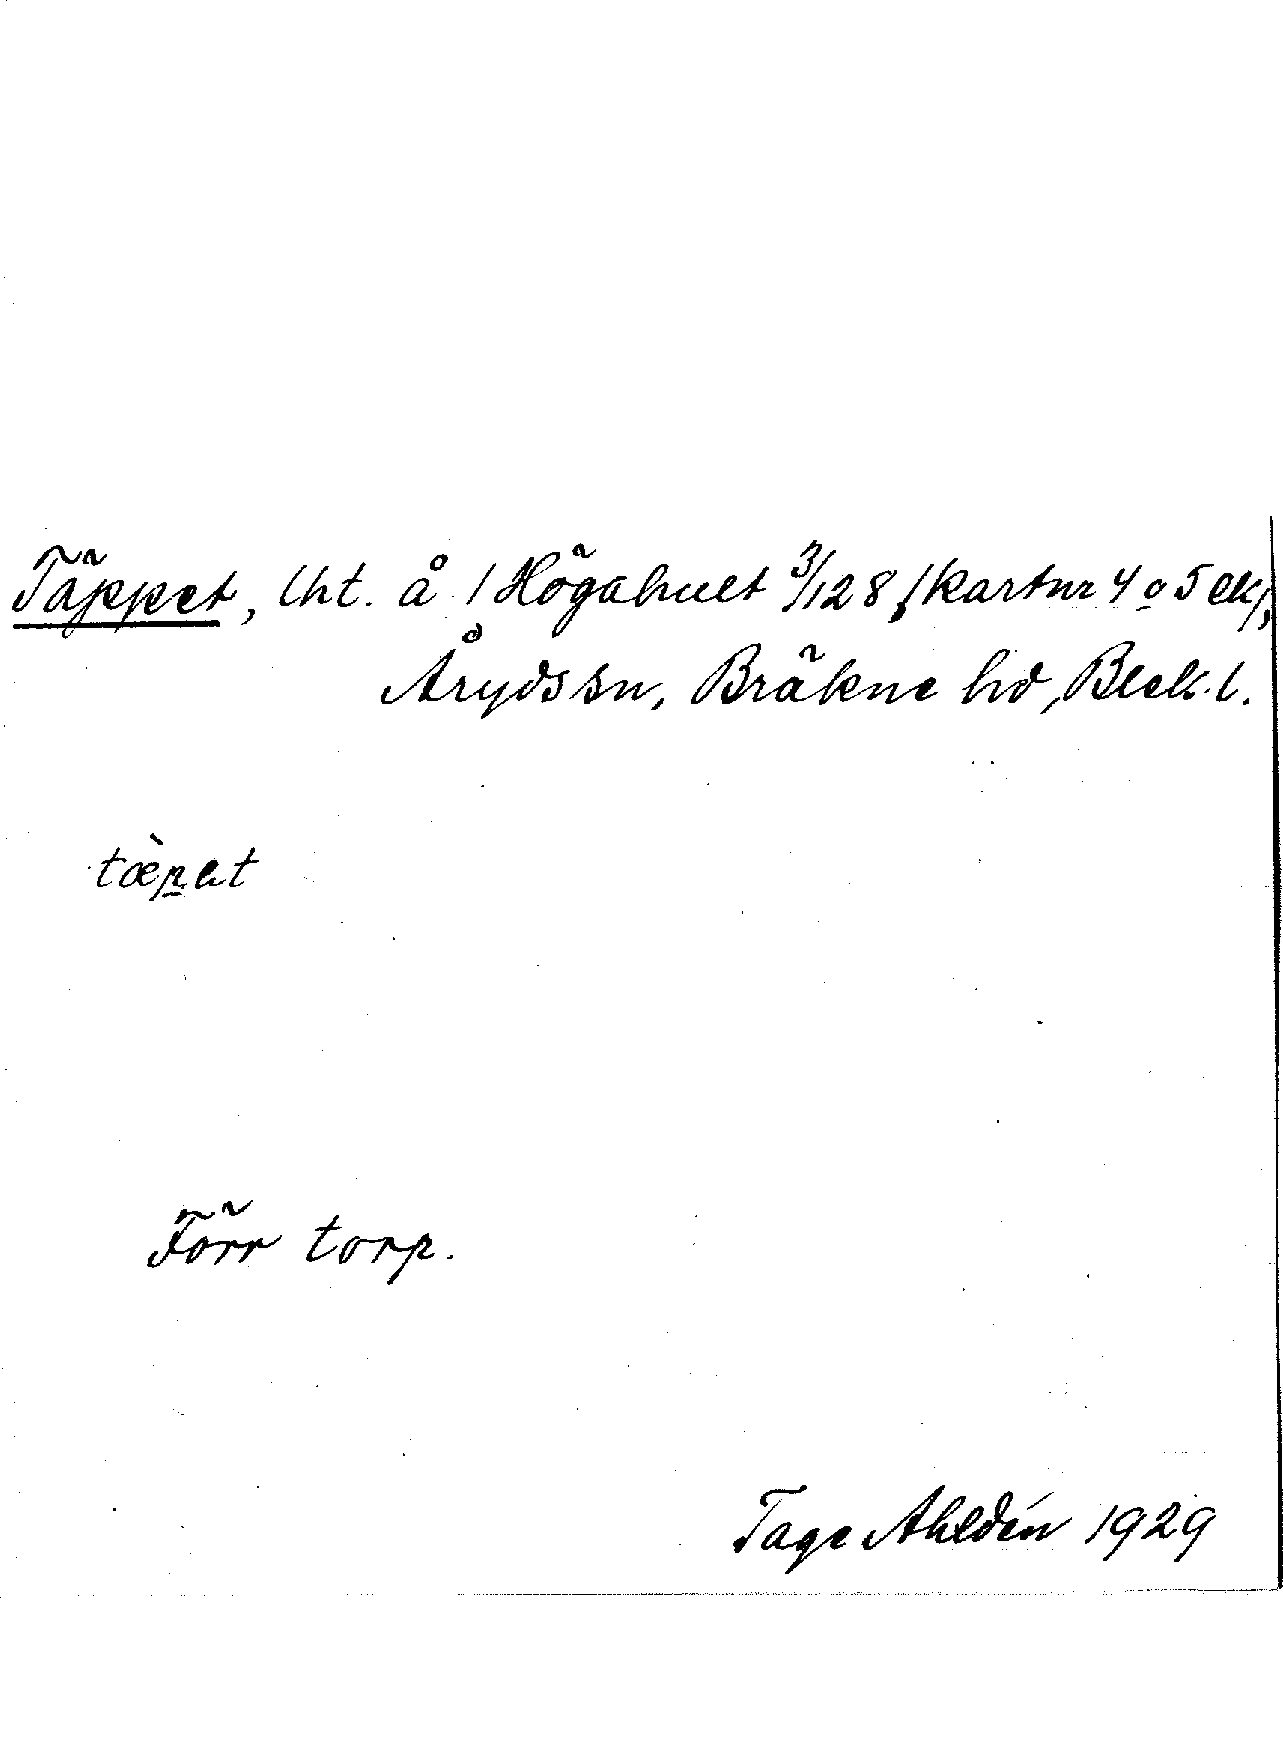 Täppet, lht. å /Högahult 3/128 /kartnr 4 o 5 ek/,
Åryds sn, Bräkne hd, Blek. l.
tæ̀p̲et
Förr torp.
Tage Ahldén 1929